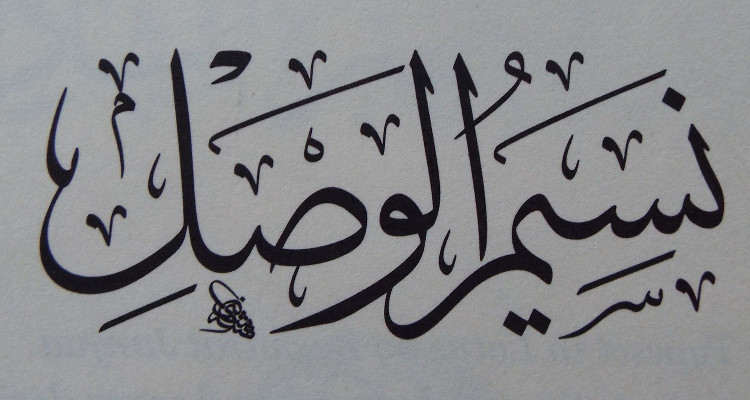 نَسِيمُ الوَصْلِ